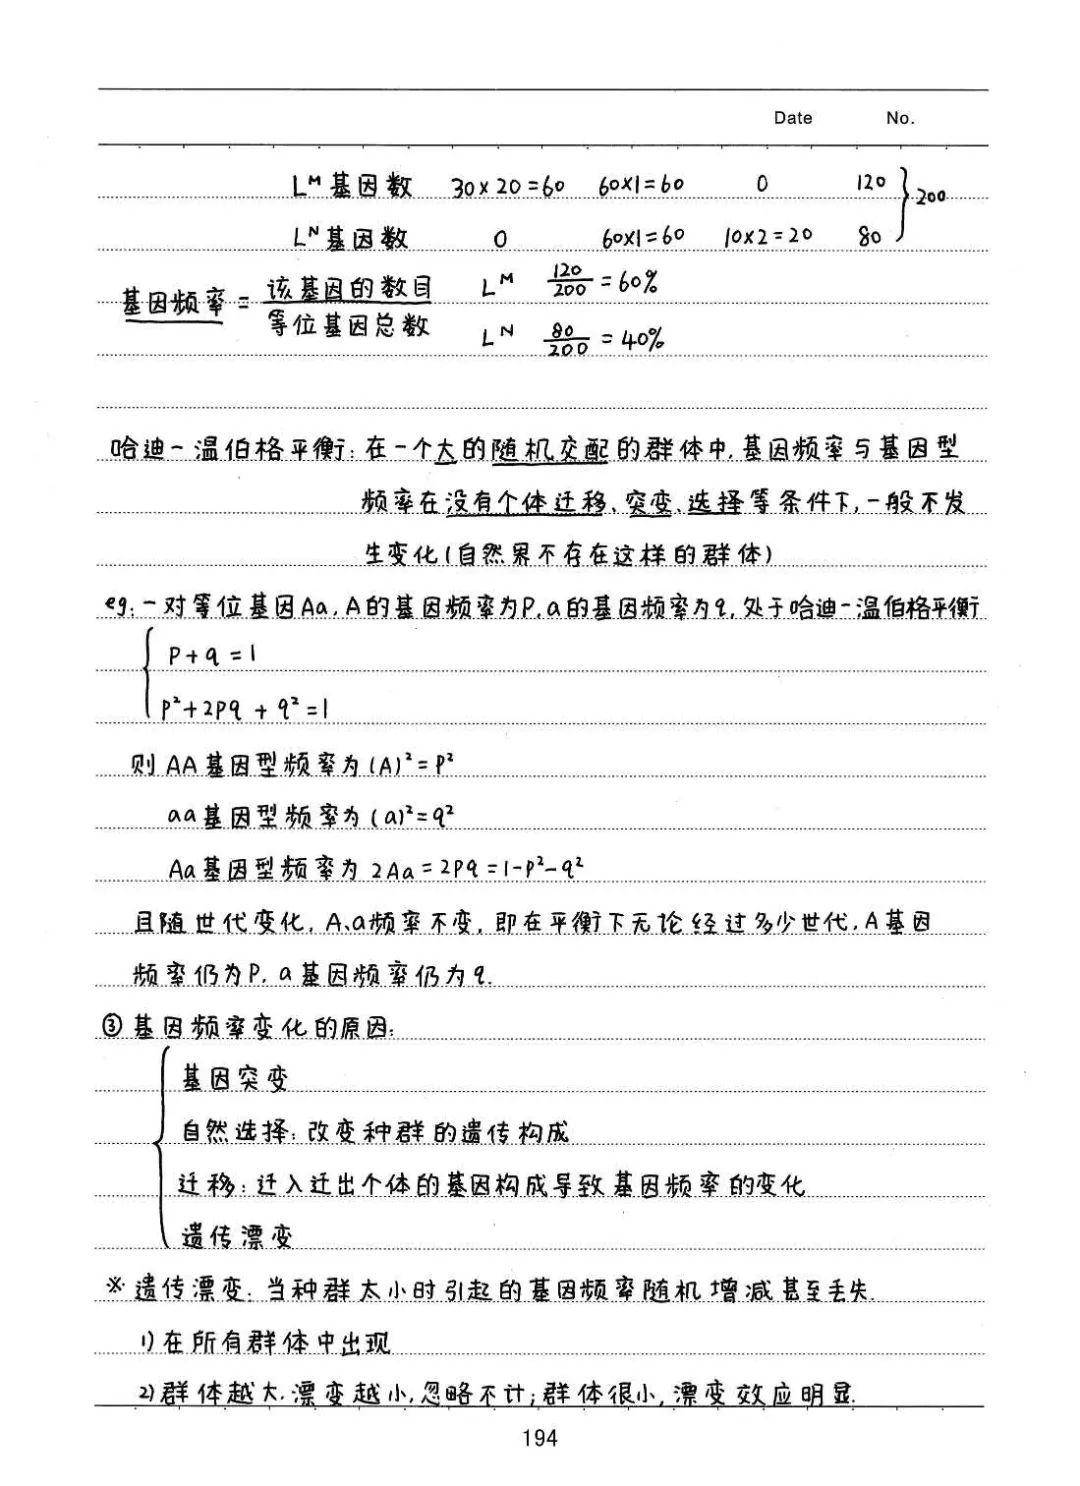 Date No.
L^M基因数 30×20=60 60×1=60 0 120
200
L^N基因数 0 60×1=60 10×2=20 80
基因频率 = 该基因的数目/等位基因总数 L^M 120/200 = 60%
L^N 80/200 = 40%
哈迪-温伯格平衡: 在一个大的随机交配的群体中,基因频率与基因型
频率在没有个体迁移、突变、选择等条件下,一般不发
生变化(自然界不存在这样的群体)
eg: 一对等位基因Aa,A的基因频率为P,a的基因频率为q,处于哈迪-温伯格平衡
P+q=1
p²+2pq+q²=1
则AA基因型频率为(A)²=P²
aa基因型频率为(a)²=q²
Aa基因型频率为2Aa=2Pq=1-P²-q²
且随世代变化,A、a频率不变,即在平衡下无论经过多少世代,A基因
频率仍为P,a基因频率仍为q.
③基因频率变化的原因:
基因突变
自然选择: 改变种群的遗传构成
迁移: 迁入迁出个体的基因构成导致基因频率的变化
遗传漂变
※遗传漂变: 当种群太小时引起的基因频率随机增减甚至丢失.
1)在所有群体中出现
2)群体越大,漂变越小,忽略不计;群体很小,漂变效应明显.
194